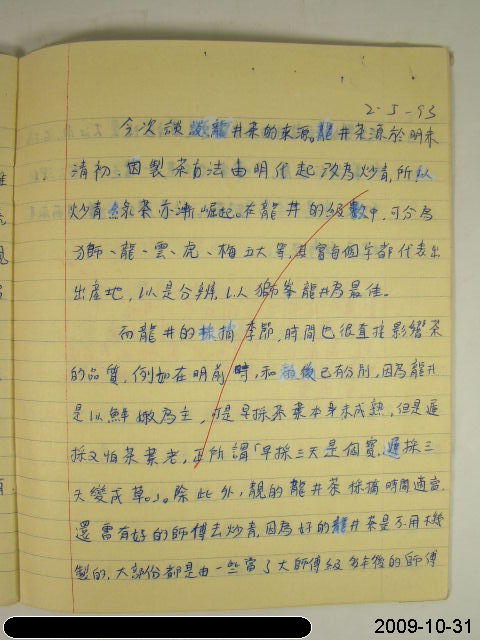 2-5-93
今次談談龍井茶的來源。龍井茶源於明末
清初,因製茶方法由明代起改為炒青,所以
炒青綠茶亦漸崛起。在龍井的級數中,可分為
獅、龍、雲、虎、梅五大等,其實每個字都代表出
出產地,以是分辨,以人獅峯龍井為最佳。
而龍井的採摘季節,時間也很直接影響茶
的品質,例如在明前時,和 後已有分別,因為龍井
是以鮮嫩為主,可是早採茶葉本身未成熟,但是遲
採又怕茶葉老,正所謂「早採三天是個寶,遲採三
天變成草。」。除此外,靚的龍井茶採摘時間適當,
還需有好的師傅去炒青,因為好的龍井茶是不用機
製的,大部份都是由一些當了大師傅級多年後的師傅
2009-10-31